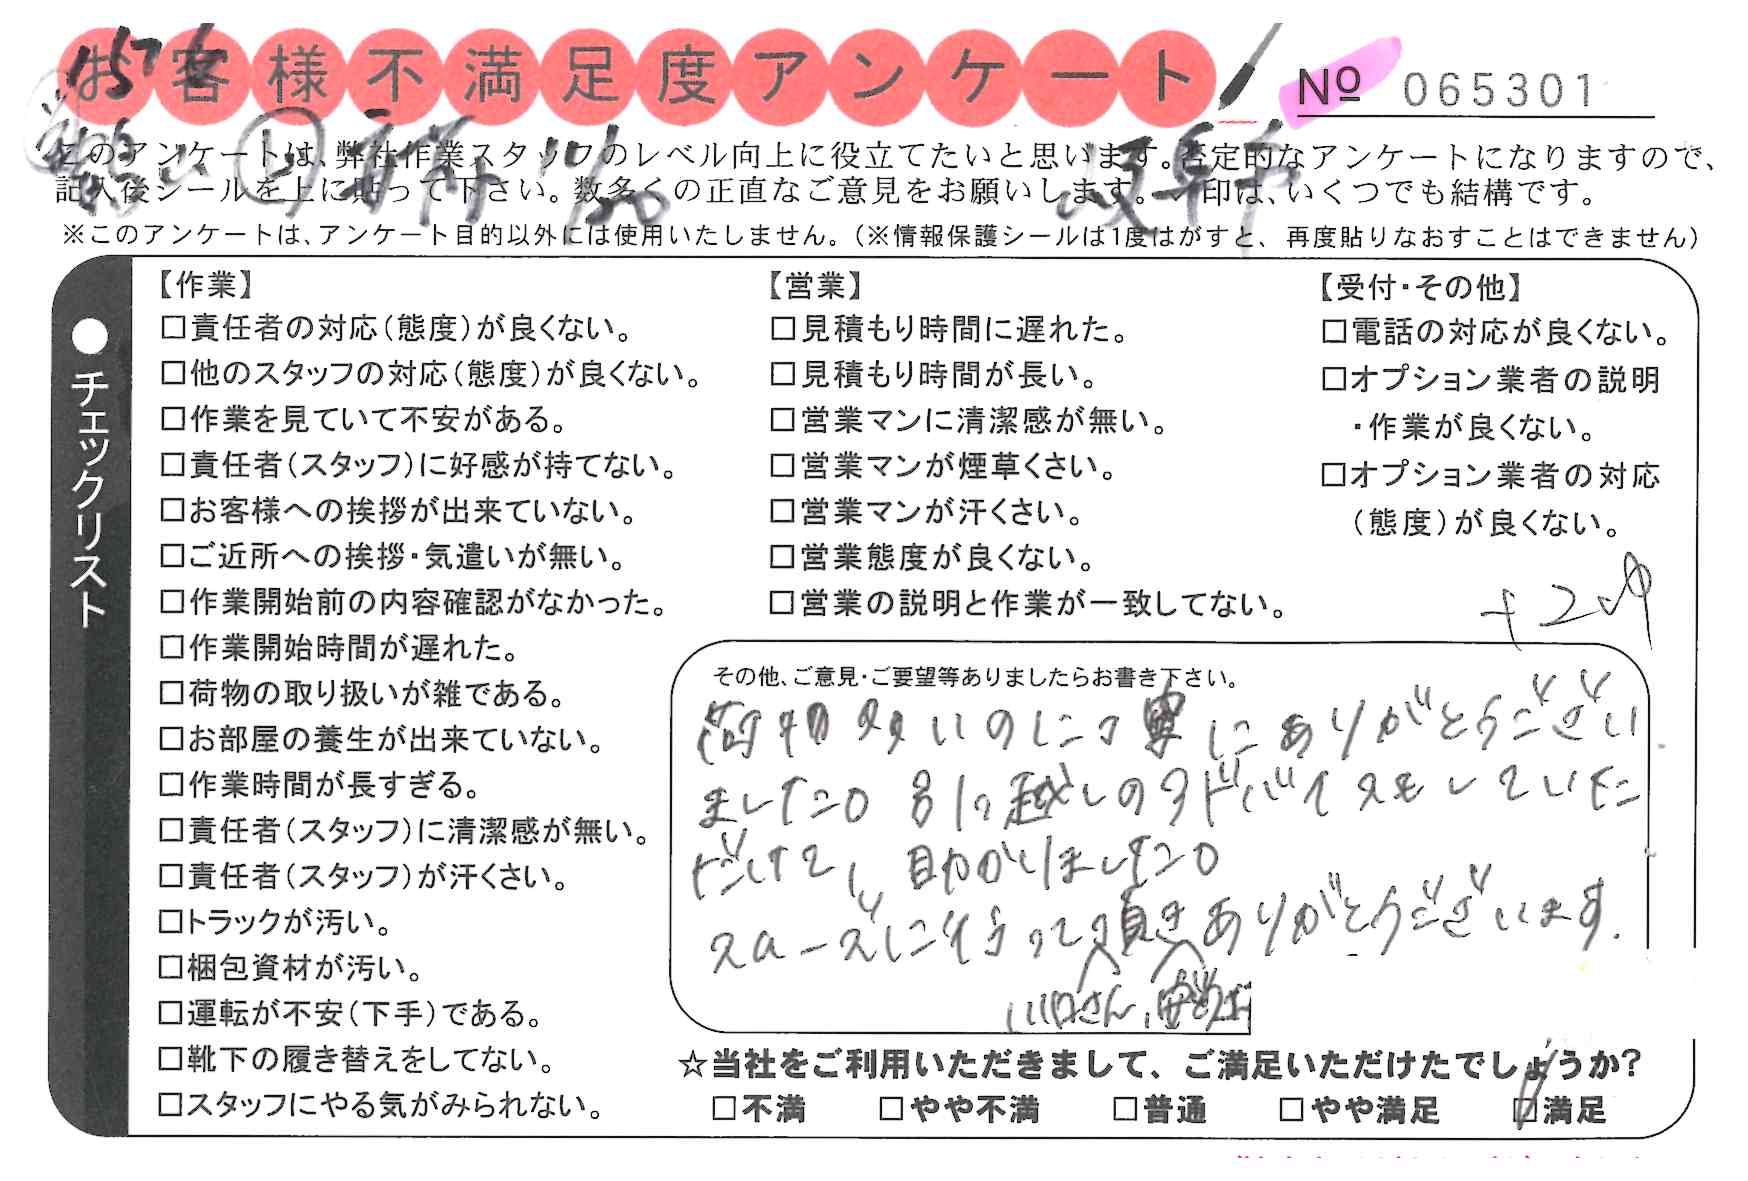 お客様不満足度アンケート
№ 065301
このアンケートは、弊社作業スタッフのレベル向上に役立てたいと思います。否定的なアンケートになりますので、
記入後シールを上に貼って下さい。数多くの正直なご意見をお願いします。レ印は、いくつでも結構です。
※このアンケートは、アンケート目的以外には使用いたしません。（※情報保護シールは1度はがすと、再度貼りなおすことはできません）
●チェックリスト
【作業】
□責任者の対応（態度）が良くない。
□他のスタッフの対応（態度）が良くない。
□作業を見ていて不安がある。
□責任者（スタッフ）に好感が持てない。
□お客様への挨拶が出来ていない。
□ご近所への挨拶・気遣いが無い。
□作業開始前の内容確認がなかった。
□作業開始時間が遅れた。
□荷物の取り扱いが雑である。
□お部屋の養生が出来ていない。
□作業時間が長すぎる。
□責任者（スタッフ）に清潔感が無い。
□責任者（スタッフ）が汗くさい。
□トラックが汚い。
□梱包資材が汚い。
□運転が不安（下手）である。
□靴下の履き替えをしてない。
□スタッフにやる気がみられない。
【営業】
□見積もり時間に遅れた。
□見積もり時間が長い。
□営業マンに清潔感が無い。
□営業マンが煙草くさい。
□営業マンが汗くさい。
□営業態度が良くない。
□営業の説明と作業が一致してない。
【受付・その他】
□電話の対応が良くない。
□オプション業者の説明
・作業が良くない。
□オプション業者の対応
（態度）が良くない。
その他、ご意見・ご要望等ありましたらお書き下さい。
荷物多いのに丁寧にありがとうござい
ました。引っ越しのアドバイスもしていた
だけて、助かりました。
スムーズに行って頂きありがとうございます.
川口さん、
☆当社をご利用いただきまして、ご満足いただけたでしょうか？
□不満 □やや不満 □普通 □やや満足 □満足